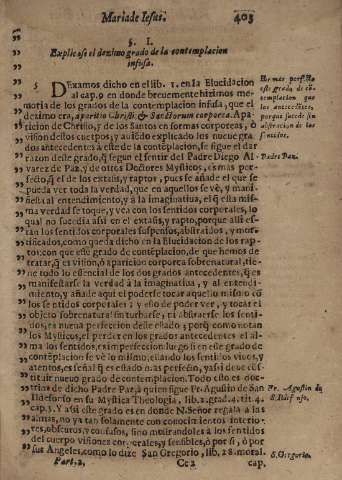 Maria de Iesus. 403
§. I.
Explicase el dezimo grado de la contemplacion
infusa.
5 Dexamos dicho en el lib. 1. en la Elucidacion
al cap. 9. en donde brevemente hizimos me-
moria de los grados de la contemplacion infusa, que el
dezimo era, aparitio Christi, & Sanctorum corporea. Apa-
ricion de Christo, y de los Santos en formas corporeas, ò
vision destos cuerpos; y aviẽdo explicado los nueve gra-
dos antecedentes à este de la cõtẽplacion, se sigue el dar
razon deste grado, q̃ segun el sentir del Padre Diego Al-
varez de Paz, y de otros Doctores Mysticos, es mas per-
fecto, q̃ el de los extasis, y raptos, pues se añade el que se
pueda ver toda la verdad, que en aquellos se vè, y mani-
fiesta al entendimiento, y à la imaginativa, el q̃ esta mis-
ma verdad se toque, y vea con los sentidos corporales, lo
qual no sucedia assi en el extasis, y rapto, porque alli es-
tan los sentidos corporales suspensos, abstraidos, y mor-
tificados, como queda dicho en la Elucidacion de los rap-
tos: con que este grado de contẽplacion, de que hemos de
tratar, q̃ es vision, ò aparicion corporea sobrenatural, tie-
ne todo lo essencial de los dos grados antecedentes, q̃ es
manifestarse la verdad à la imaginativa, y al entendi-
miento, y añade aqui el poderse tocar aquello mismo cõ
los sentidos corporales; y esto de poder ver, y tocar el
objeto sobrenatural sin turbarse, ni abstraerse los senti-
dos, es nueva perfeccion deste estado; porq̃ como notan
los Mysticos, el perder en los grados antecedentes el al-
ma los sentidos, es imperfeccion: luego si en este grado de
contẽplacion se vè lo mismo, estando los sentidos vivos, y
atentos, es señal q̃ es estado mas perfecto, y assi deve cõs-
tituir nuevo grado de contemplacion. Todo esto es doc-
trina de dicho Padre Paz, à quien sigue Fr. Agustin de San
Ildefonso en su Mystica Theologia, lib. 2. grad. 4. tit. 4.
cap. 3. Y assi este grado es en donde N. Señor regala à las
almas, no ya tan solamente con conocimientos interio-
res, obscuros, y confusos, sino mostrandolos à los sentidos
del cuerpo visiones corporales, y sensibles, ò por si, ò por
sus Angeles, como lo dize San Gregorio, lib. 28. moral.
Part. 2. Cc 2 cap.
Es mas perfecto
este grado de co-
templacion que
los antecedentes,
porque sucede sin
abstraccion de los
sentidos.
Padre Paz.
Fr. Agustin de
S. Ildefonso.
S. Gregorio.